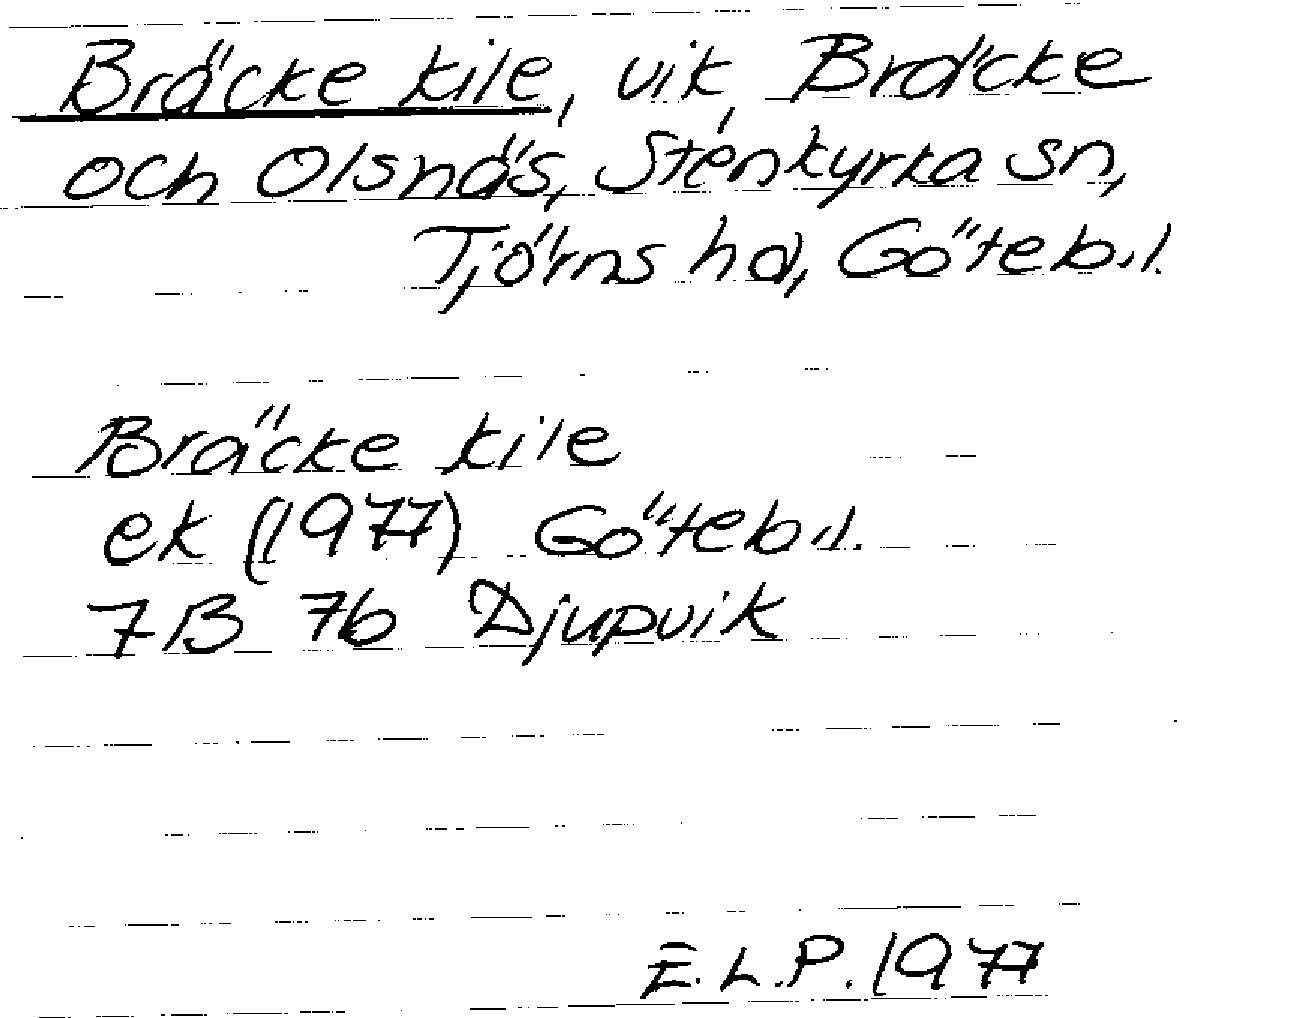 Bräcke kile, vik, Bräcke
och Olsnäs, Stenkyrka sn,
Tjörns hd, Göteb.l.
Bräcke kile
ek (1977) Göteb.l.
7B 7b Djupvik
E.L.P. 1977